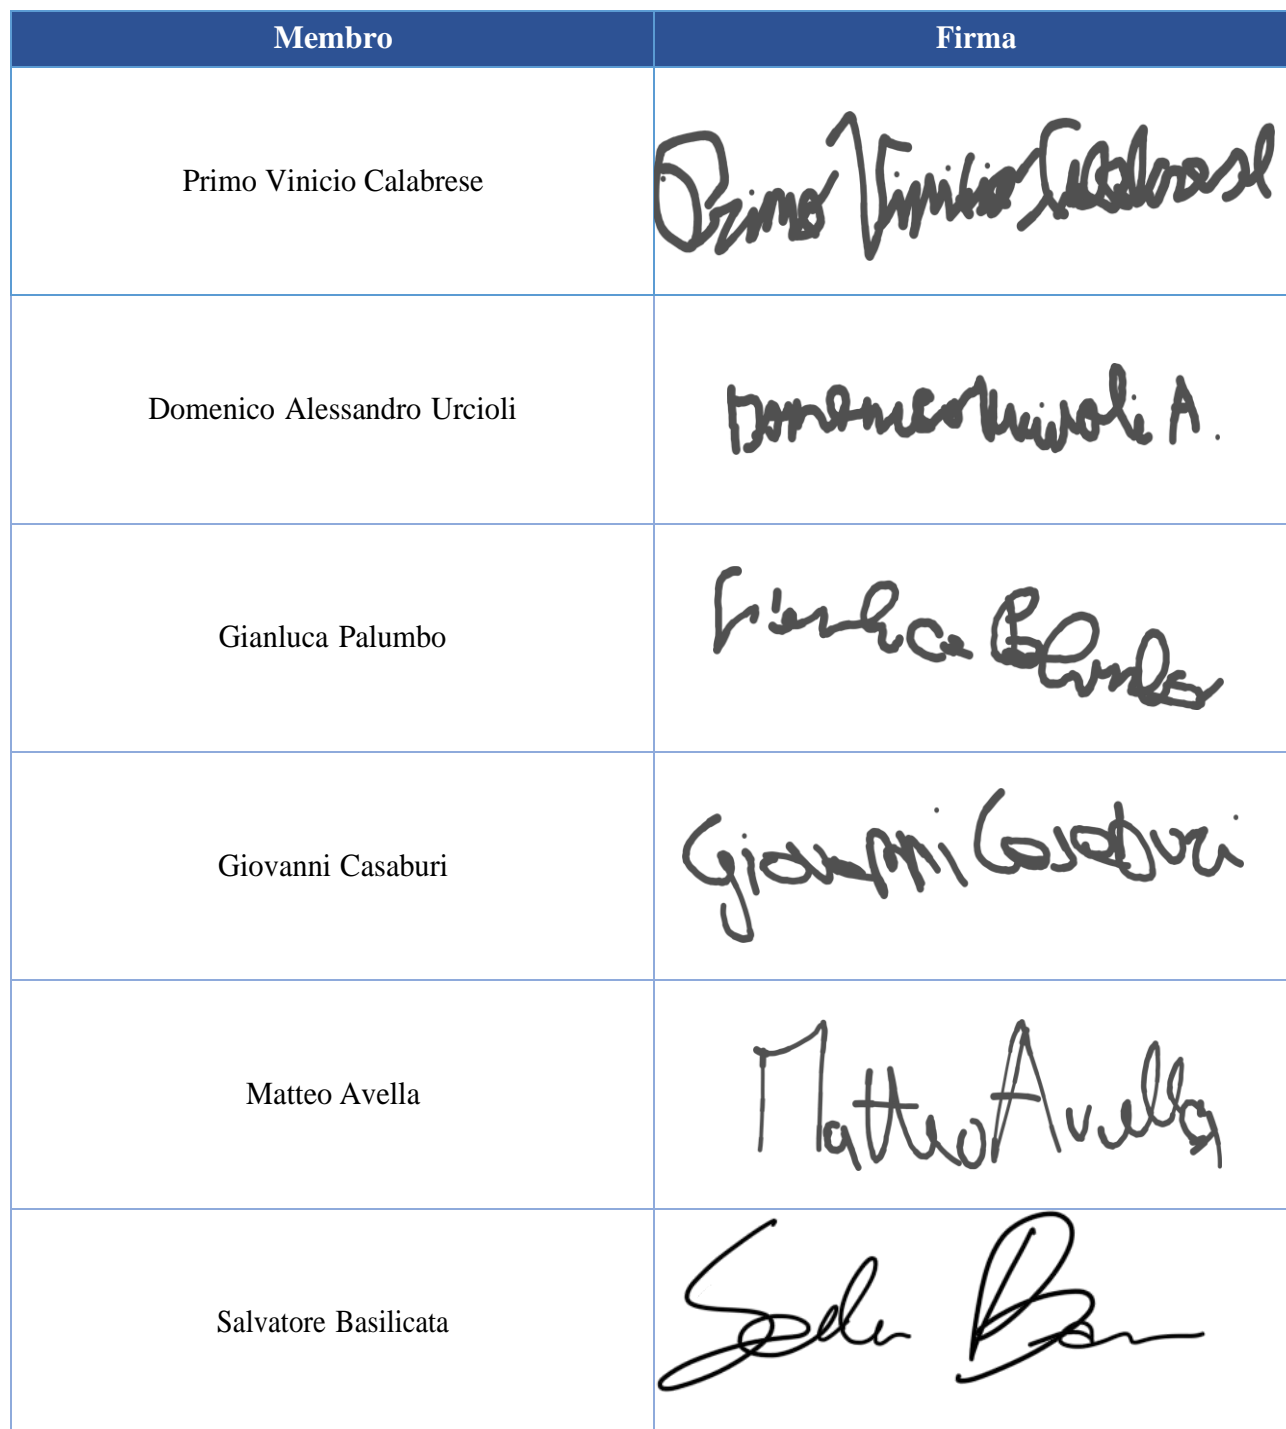 Membro Firma
Primo Vinicio Calabrese Primo Vinicio Calabrese
Domenico Alessandro Urcioli Domenico Urcioli A.
Gianluca Palumbo Gianluca Palumbo
Giovanni Casaburi Giovanni Casaburi
Matteo Avella Matteo Avella
Salvatore Basilicata